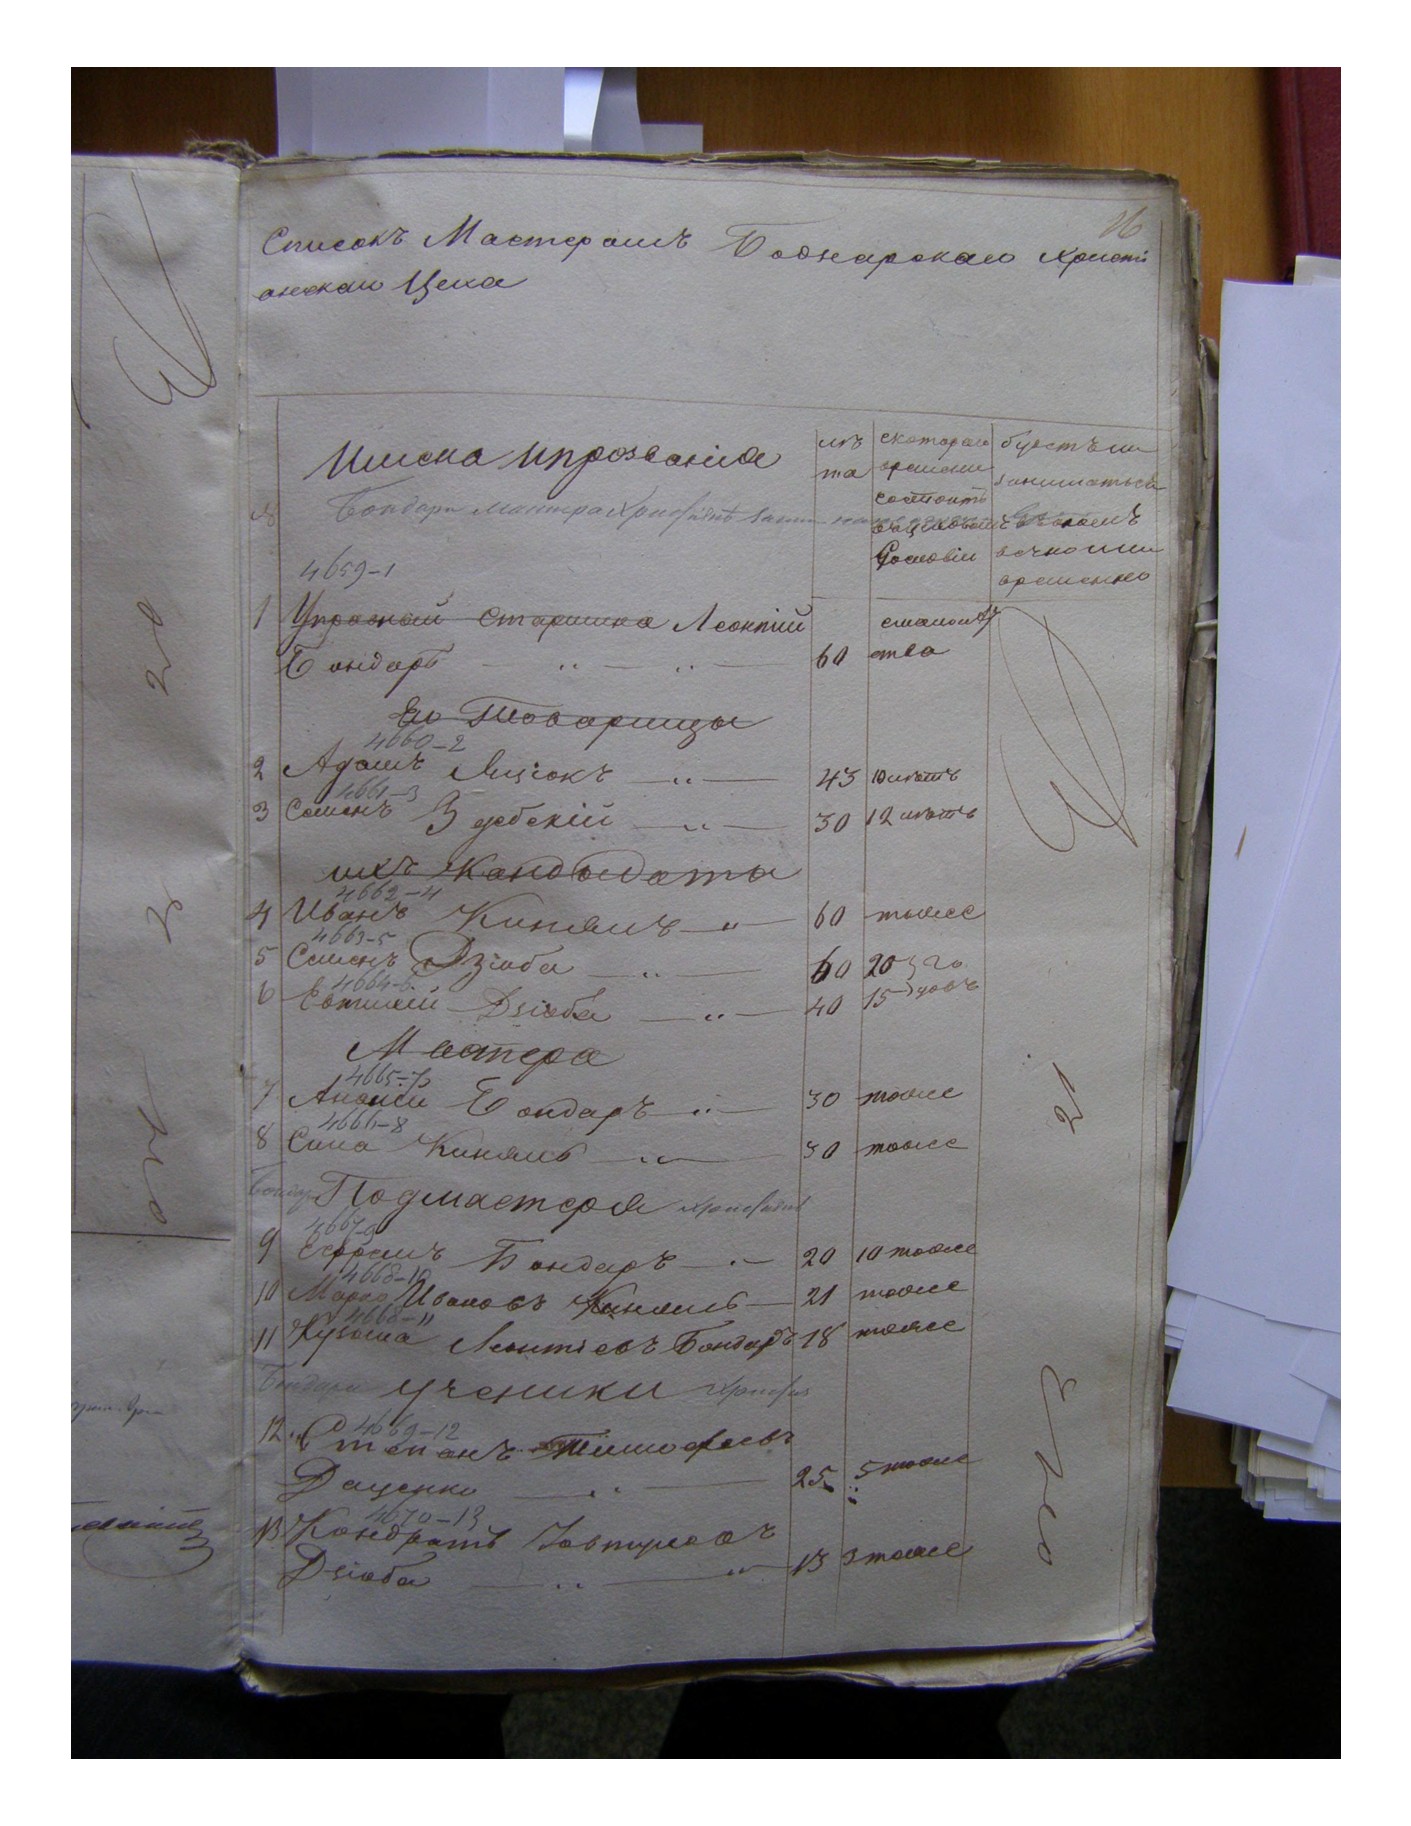 16
Списокъ Мастерамъ Боднарскаго Христи
анскаго Цеха
Имена ипрозванія
лѣ
та
скотораго
времени
состоитъ
вцеховомъ
Сословіи
будетъ ли
заниматься
вечно или
временно
№
Бондари мастера Христіянъ
4659-1
1 Управной Старшина Леонтій
Бондарь 60
смаломѣ
тва
Его Товарищы
4660-2
2 Адамъ Яцюкъ 43 10 лѣтъ
4661-3
3 Семенъ Здебскій 30 12 лѣтъ
ихъ Кандыдаты
4662-4
4 Иванъ 60 тоже
4663-5
5 Семенъ Дзюба 60 20 го
4664-6
6 Евтихій Дзюба 40 15 довъ
Мастера
4665-7
7 Ананій Бондарь 30 тоже
4666-8
8 Сила 30 тоже
Бондар Подмастеря Христіянъ
4667-9
9 Ефремъ Бондарь 20 10 тоже
4668-10
10 Марко Ивановъ 21 тоже
4668-11
11 Кузьма Леонтіевъ Бондарь 18 тоже
Бондари Ученики Христіян
4669-12
12 Степанъ Тимофеевъ
Даценко 25 5 тоже
4670-13
13 Кондратъ Іовтуховъ
Дзюба 13 3 тоже